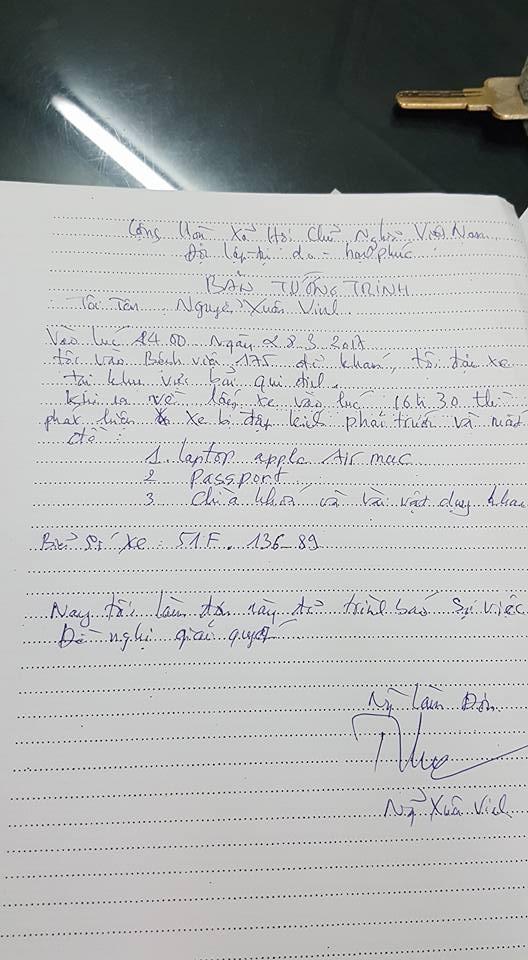 Cộng Hoà Xã Hội Chủ Nghĩa Việt Nam
Độc lập - tự do - hạnh phúc
BẢN TƯỜNG TRÌNH
Tôi Tên Nguyễn Xuân Vinh
Vào lúc 14.00 ngày 28.3.2017
tôi vào Bệnh viện 175 để khám, tôi đậu xe
tại khu vực bãi qui định.
Khi ra về lấy xe vào lúc 16h30 thì
phát hiện xe bị đập kính phải trước và mất
đồ:
1 laptop apple Air mac
2 Passport
3 Chìa khoá và vài vật dụng khác
Biển số xe: 51F. 136-89
Nay tôi làm đơn này để trình báo sự việc
Đề nghị giải quyết
Ng làm Đơn
Ng Xuân Vinh